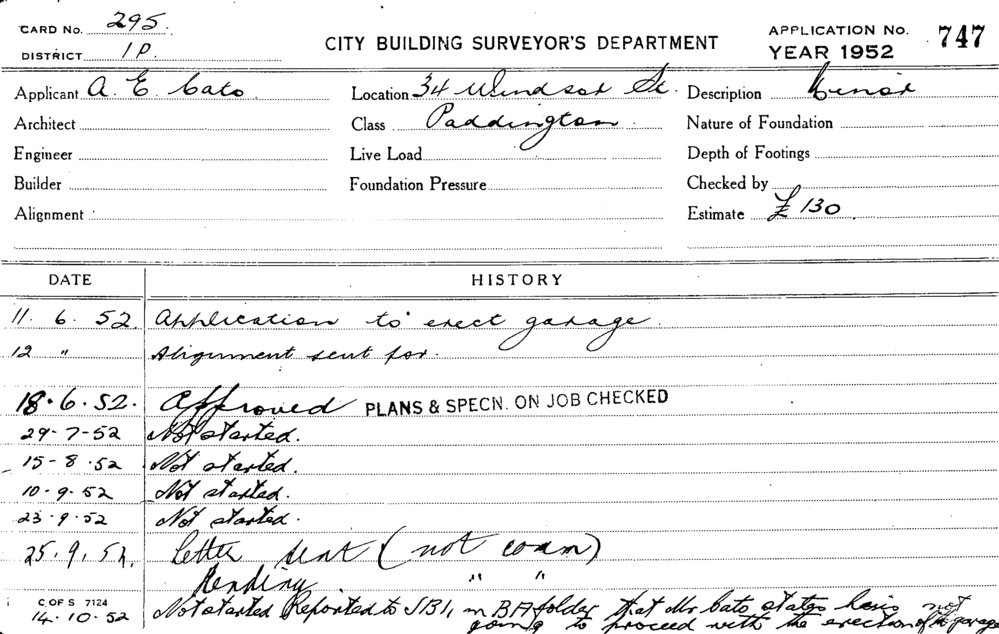 CARD No. 295.
DISTRICT 1P.
CITY BUILDING SURVEYOR'S DEPARTMENT
APPLICATION No. 747
YEAR 1952
Applicant A. E. Cato Location 34 Windsor St. Description Minor
Architect Class Paddington Nature of Foundation
Engineer Live Load Depth of Footings
Builder Foundation Pressure Checked by
Alignment Estimate £130.
DATE HISTORY
11. 6. 52. Application to erect garage.
12 " Alignment sent for.
18. 6. 52. Approved PLANS & SPECN. ON JOB CHECKED
29-7-52 Not started.
15-8-52 Not started.
10-9-52 Not started.
23-9-52 Not started.
25. 9. 52. Letter sent (not comm)
Pending " "
C. OF S 7124
14.10.52 Not started Reported to SBI, in BA folder that Mr Cato states he is not
going to proceed with the erection of the garage